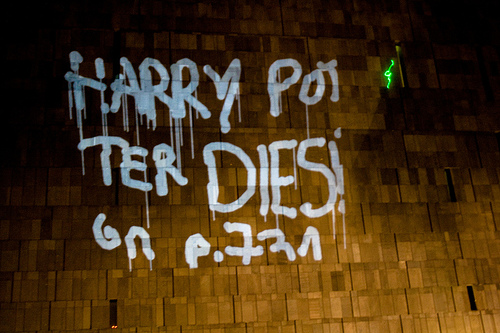 HARRY POT
TER DIES!
on p.721